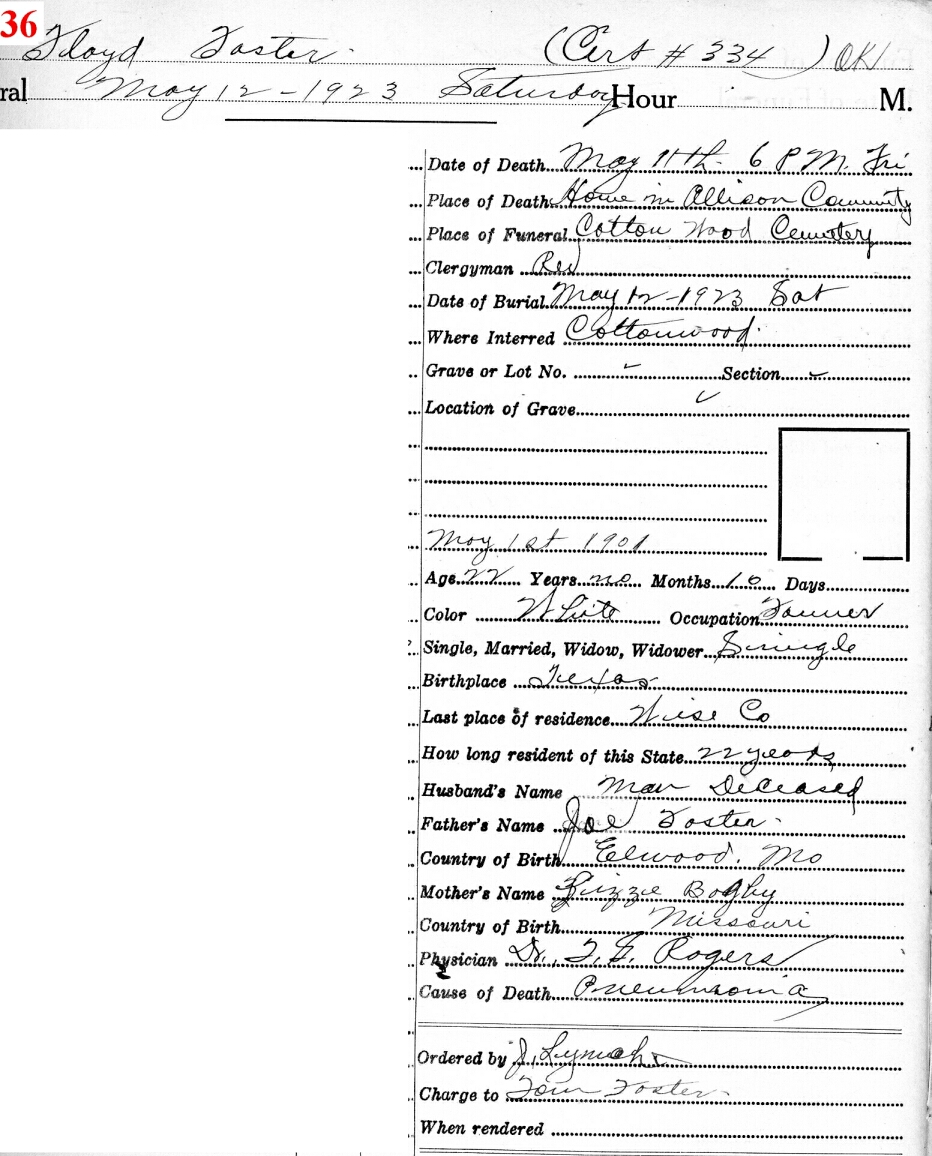 36
Floyd Foster (Cert # 334 ) OK
ral May 12 - 1923 Saturday Hour M.
Date of Death May 11th 6 P.M. Fri
Place of Death Home in Allison Community
Place of Funeral Cotton Wood Cemetery
Clergyman Rev
Date of Burial May 12-1923 Sat
Where Interred Cottonwood
Grave or Lot No. Section
Location of Grave
May 1st 1901
Age 22 Years no Months 10 Days
Color White Occupation Farmer
Single, Married, Widow, Widower Single
Birthplace Texas
Last place of residence Wise Co
How long resident of this State 22 years
Husband's Name Deceased
Father's Name Joe Foster
Country of Birth Elwood, Mo
Mother's Name Lizzie Bagby
Country of Birth Missouri
Physician Dr. Rogers
Cause of Death Pneumonia
Ordered by J.
Charge to Tom Foster
When rendered